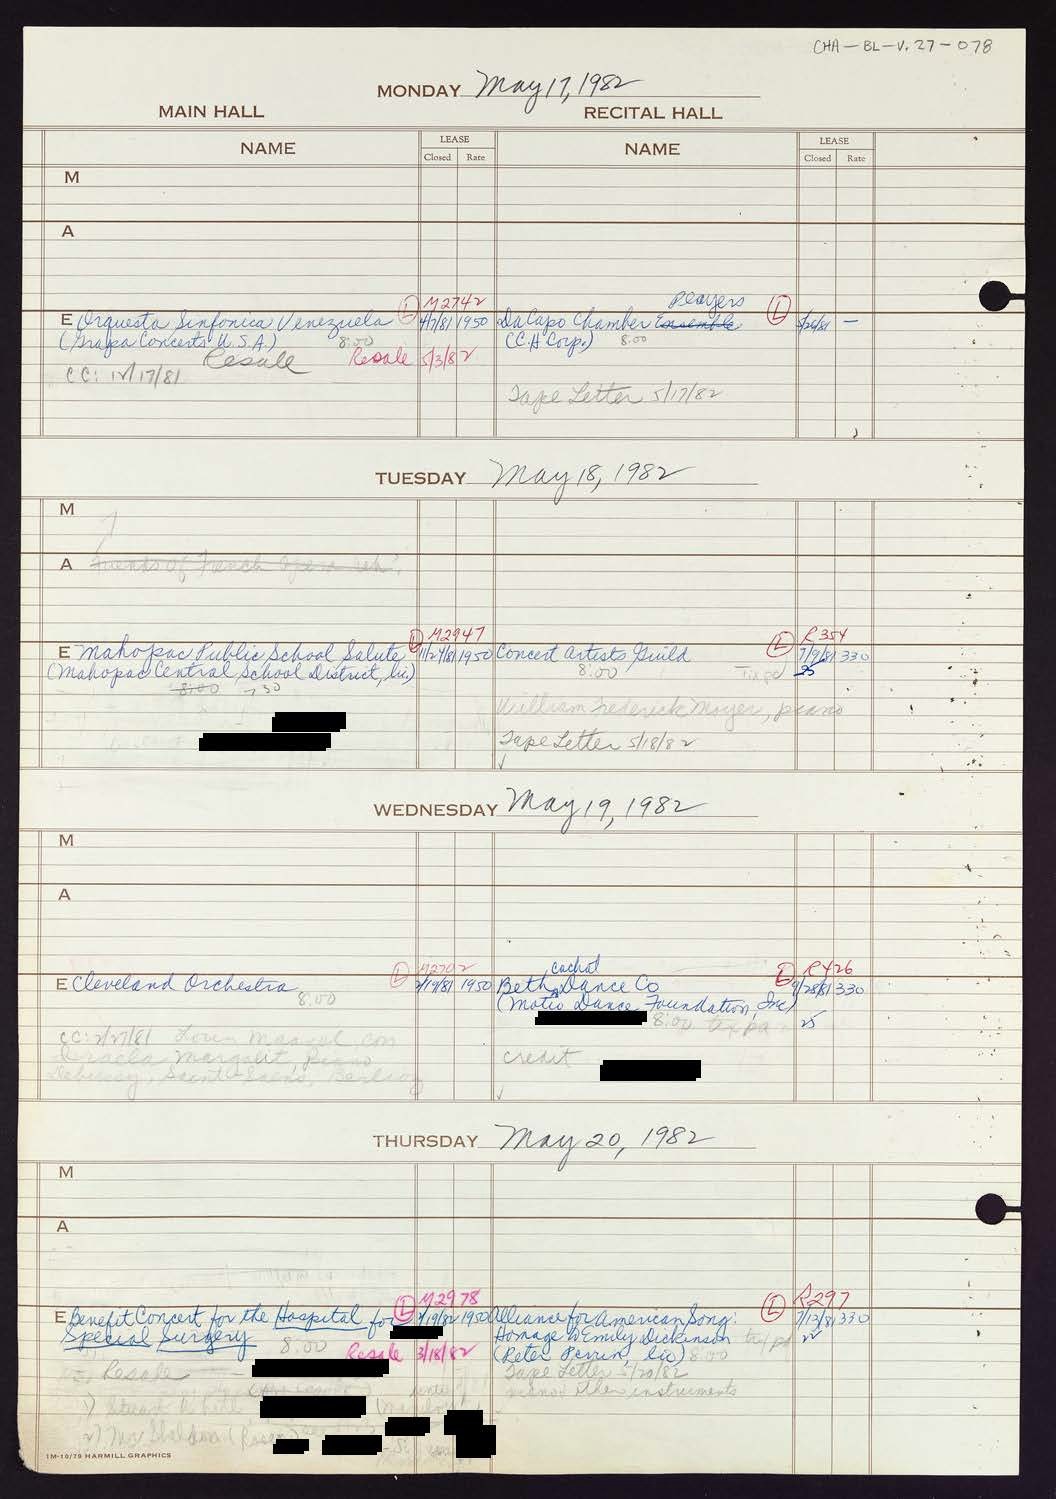 CHA-BL-V.27-078
MONDAY May 17, 1982
MAIN HALL RECITAL HALL
NAME LEASE NAME LEASE
Closed Rate Closed Rate
M
A
M2742 Players
E Orquesta Sinfonica Venezuela L 4/7/81 1950 Da Capo Chamber Ensemble L 5/26/81 —
(Grapa Concerts U.S.A.) 8:00 (C.H. Corp.) 8:00
Resale Resale 5/3/82
CC: 12/17/81
Tape Letter 5/17/82
TUESDAY May 18, 1982
M
A Friends of French Opera
M2947 R354
E Mahopac Public School Salute L 11/24/81 1950 Concert Artists Guild L 7/9/81 330
(Mahopac Central School District, lic) 8:00 Tix pd 25
8:00 7:30
William Frederick Moyer, piano
Tape Letter 5/18/82
WEDNESDAY May 19, 1982
M
A
M2702 cachat R426
E Cleveland Orchestra L 2/19/81 1950 Beth Dance Co L 9/28/81 330
8:00 (Motio Dance Foundation, Inc)
8:00 tix pd 25
CC: 2/27/81 Lorin Maazel, con
Israela Margalit, piano credit
Debussy, Saint-Saens, Berlioz
THURSDAY May 20, 1982
M
A
M2978 R297
E Benefit Concert for the Hospital for L 1/19/82 1950 Alliance for American Song: L 7/13/81 330
Special Surgery Homage to Emily Dickinson tix pd
8:00 Resale 3/18/82 (Peter Perrin, lic) 8:00
Resale Tape Letter 5/20/82
piano, other instruments
1)
2) Mr Sheldon
1M-10/79 HARMILL GRAPHICS